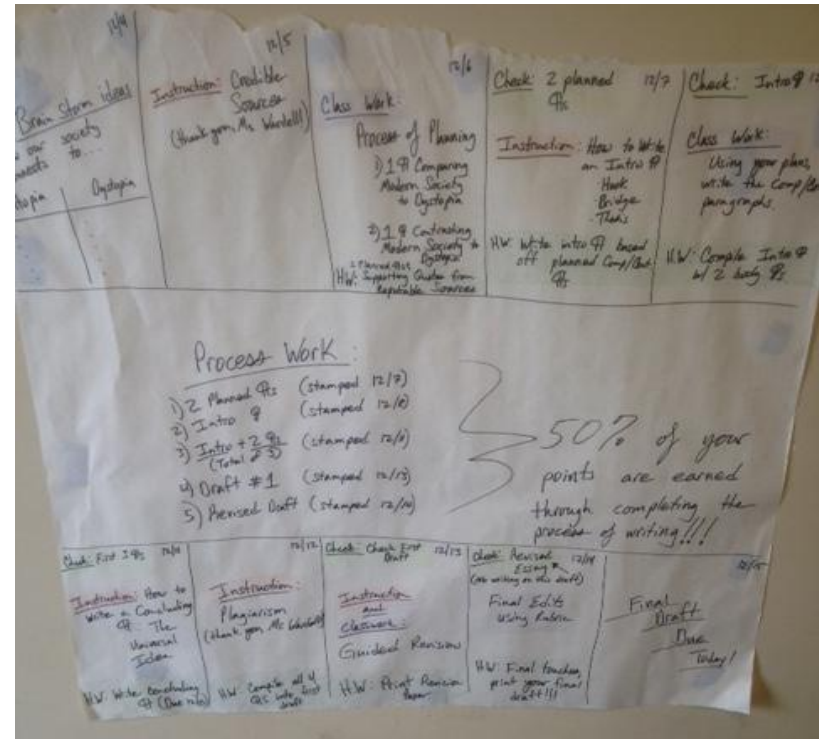 12/4
Brain Storm ideas
our society
to...
Dystopia
12/5
Instruction: Credible
Sources
(thank you, Ms
12/6
Class Work:
Process of Planning
1) 1 ¶ Comparing
Modern Society
to Dystopia
2) 1 ¶ Contrasting
Modern Society to
Dystopia
HW: Supporting Quotes from
Reputable Sources
Check: 2 planned 12/7
¶s
Instruction: How to write
an Intro ¶
- Hook
- Bridge
- Thesis
HW: Write intro ¶ based
off planned Comp/Cont.
¶s
Check: Intro ¶
Class Work:
Using your plans,
write the
paragraphs.
H.W: Compile Intro ¶
w/ 2 body ¶s
Process Work:
1) 2 Planned ¶s (stamped 12/7)
2) Intro ¶ (stamped 12/8)
3) Intro + 2 ¶s (stamped
(Total
4) Draft #1 (stamped 12/13)
5) Revised Draft (stamped 12/14)
50% of your
points are earned
through completing the
process of writing!!!
Check: First 3 ¶s 12/11
Instruction: How to
Write a Concluding
¶. The
Universal
Idea
HW: Write Concluding
¶ (Due
12/12
Instruction:
Plagiarism
(thank you, Ms
HW: Compile all 4
¶s into first
draft
Check: Check First 12/13
Draft
Instruction
and
Classwork:
Guided Revision
H.W: Print Revision
Paper
Check: Revised 12/14
Essay
(no writing on this draft)
Final Edits
using Rubric
H.W: Final touches,
print your final
draft!!!
12/15
Final
Draft
Due
Today!